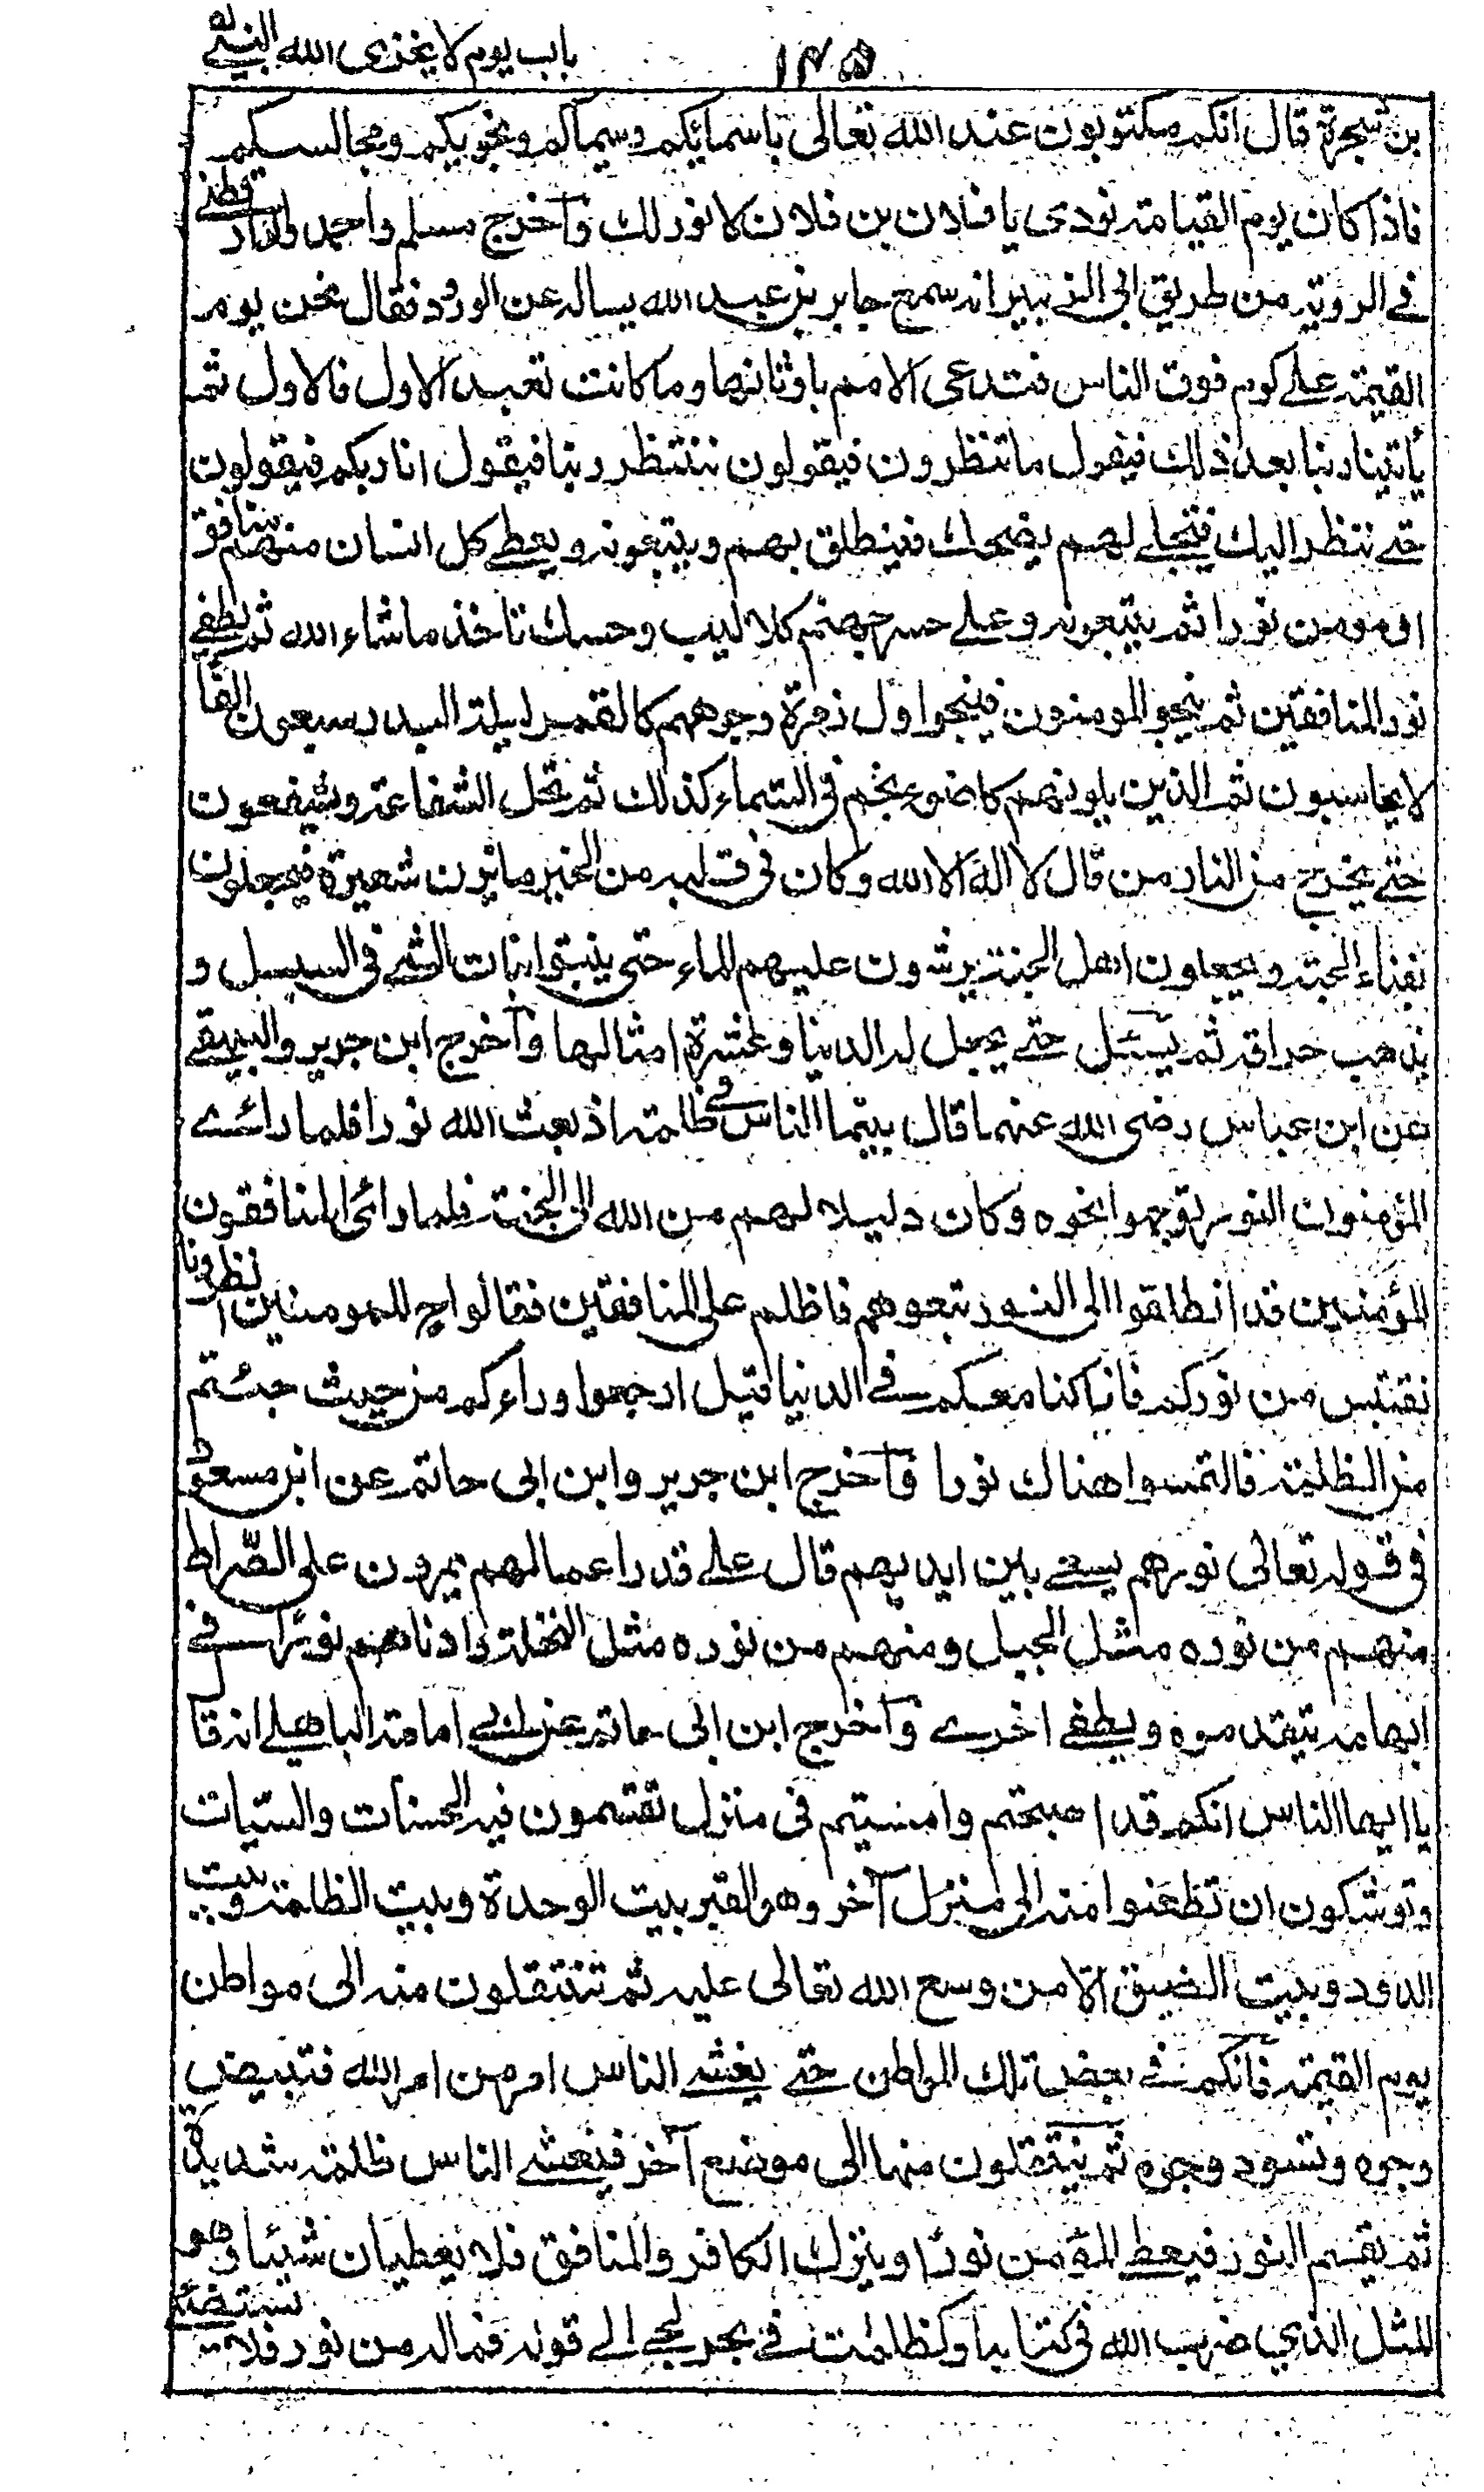 باب يوم لا يخزى الله النبى
١٣٥
بن شجرة قال انكم مكتوبون عند الله تعالى باسمائكم وسيماكم ونجويكم ومجالسكم
فاذا كان يوم القيامة نودى يا فلان بن فلان لا نور لك وآخرج مسلم واحمد والدارقطنى
فى الروية من طريق ابى الزبير انه سمع جابر بن عبد الله يساله عن الورود فقال نحن يوم
القيمة على كوم فوق الناس فتدعى الامم باوثانها وما كانت تعبد الاول فالاول ثم
يأتينا ربنا بعد ذلك فيقول ما تنظرون فيقولون ننتظر ربنا فيقول انا ربكم فيقولون
حتى ننظر اليك فيتجلى لهم يضحك فينطلق بهم ويتبعونه ويعطى كل انسان منهم منافق
او مومن نورا ثم يتبعونه وعلى جسر جهنم كلاليب وحسك تاخذ ما شاء الله ثم يطفى
نور المنافقين ثم ينجو المومنون فينجوا اول زمرة وجوههم كالقمر ليلة البدر سبعون الفا
لا يحاسبون ثم الذين يلونهم كاضوء نجم فى السماء كذلك ثم تحل الشفاعة ويشفعون
حتى يخرج من النار من قال لا اله الا الله وكان فى قلبه من الخير ما يزن شعيرة فيجعلون
بفناء الجنة ويجعلون اهل الجنة يرشون عليهم الماء حتى ينبتوا نبات الشئ فى السيل و
يذهب حراقه ثم يسئل حتى يجعل له الدنيا وعشرة امثالها وآخرج ابن جرير والبيهقى
عن ابن عباس رضى الله عنهما قال بينما الناس فى ظلمة اذ بعث الله نورا فلما رائ
المؤمنون النور توجهوا نحوه وكان دليلا لهم من الله الى الجنة فلما رائ المنافقون
المؤمنين قد انطلقوا الى النور تبعوهم فاظلم على المنافقين فقالوا ح للمومنين انظرونا
نقتبس من نوركم فانا كنا معكم فى الدنيا قيل ارجعوا وراءكم من حيث جئتم
من الظلمة فالتمسوا هناك نورا وآخرج ابن جرير وابن ابى حاتم عن ابن مسعود
فى قوله تعالى نورهم يسعى بين ايديهم قال على قدر اعمالهم يمرون على الصراط
منهم من نوره مثل الجبل ومنهم من نوره مثل النخلة وادناهم نورا فى
ابهامه يتقد مرة ويطفى اخرى وآخرج ابن ابى حاتم عن ابى امامة الباهلى انه قا
يا ايها الناس انكم قد اصبحتم وامسيتم فى منزل تقتسمون فيه الحسنات والسيات
وتوشكون ان تظعنوا منه الى منزل آخر وهو القبر بيت الوحدة وبيت الظلمة وبيت
الدود وبيت الضيق الا من وسع الله تعالى عليه ثم تنتقلون منه الى مواطن
يوم القيمة فانكم فى بعض تلك المواطن حتى يغشى الناس امر من امر الله فتبيض
وجوه وتسود وجوه ثم تنتقلون منها الى موضع آخر فيغشى الناس ظلمة شديدة
ثم يقسم النور فيعطى المؤمن نورا ويترك الكافر والمنافق فلا يعطيان شيئا وهو
المثل الذى ضرب الله فى كتابه اوكظلمت فى بحر لجى الى قوله فما له من نور فلا يستضئ